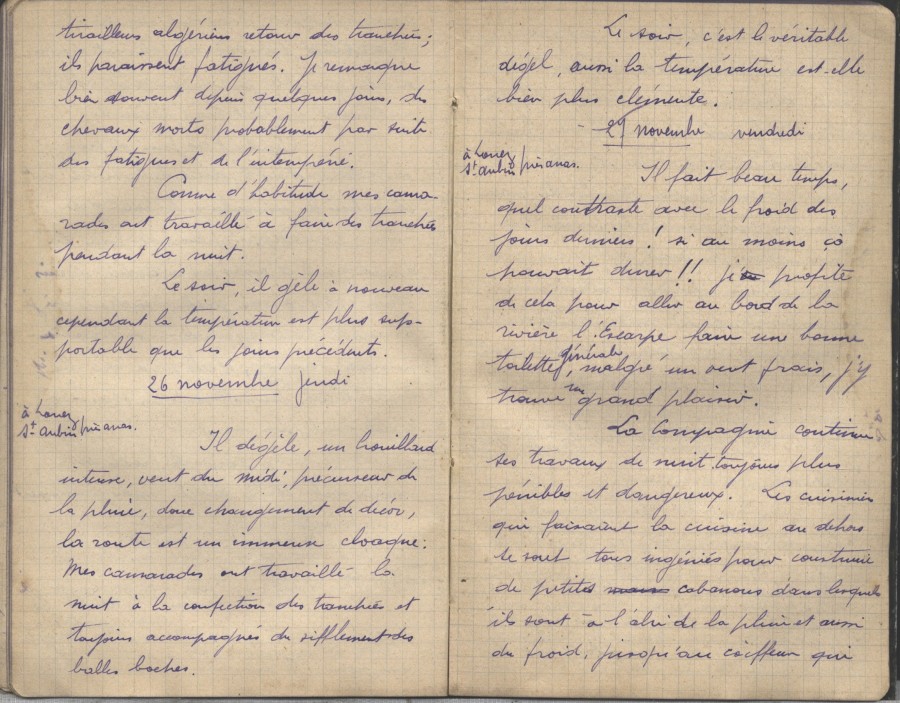 tirailleurs algériens retour des tranchées;
ils paraissent fatigués. Je remarque
bien souvent depuis quelques jours, des
chevaux morts probablement par suite
des fatigues et de l'intempérie.
Comme d'habitude mes cama-
rades ont travaillé à faire des tranchées
pendant la nuit.
Le soir, il gèle à nouveau
cependant la température est plus sup-
portable que les jours précédents.
26 novembre jeudi
à Louez
St Aubin près Arras.
Il dégèle, un brouillard
intense, vent du midi, précurseur de
la pluie, donc changement de décor,
la route est un immense cloaque.
Mes camarades ont travaillé la
nuit à la confection des tranchées et
toujours accompagnés du sifflement des
balles boches.
Le soir, c'est le véritable
dégel, aussi la température est-elle
bien plus clémente.
27 novembre vendredi
à Louez
St Aubin près Arras.
Il fait beau temps,
quel contraste avec le froid des
jours derniers! si au moins çà
pouvait durer!! je profite
de cela pour aller au bord de la
rivière l'Escarpe faire une bonne
toilette générale, malgré un vent frais, j'y
trouve un grand plaisir.
La Compagnie continue
ses travaux de nuit toujours plus
pénibles et dangereux. Les cuisiniers
qui faisaient la cuisine au dehors
se sont tous ingéniés pour construire
de petites cabanous dans lesquels
ils sont à l'abri de la pluie et aussi
du froid, jusqu'au coiffeur qui